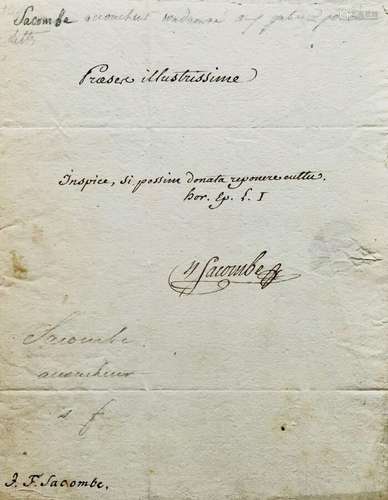 Sacombe accoucheur
dette
Præses illustrissime
Inspice, si possim donata reponere cultu.
hor. Ep. L. I
Sacombe
Sacombe
accoucheur
s f
J. F. Sacombe.